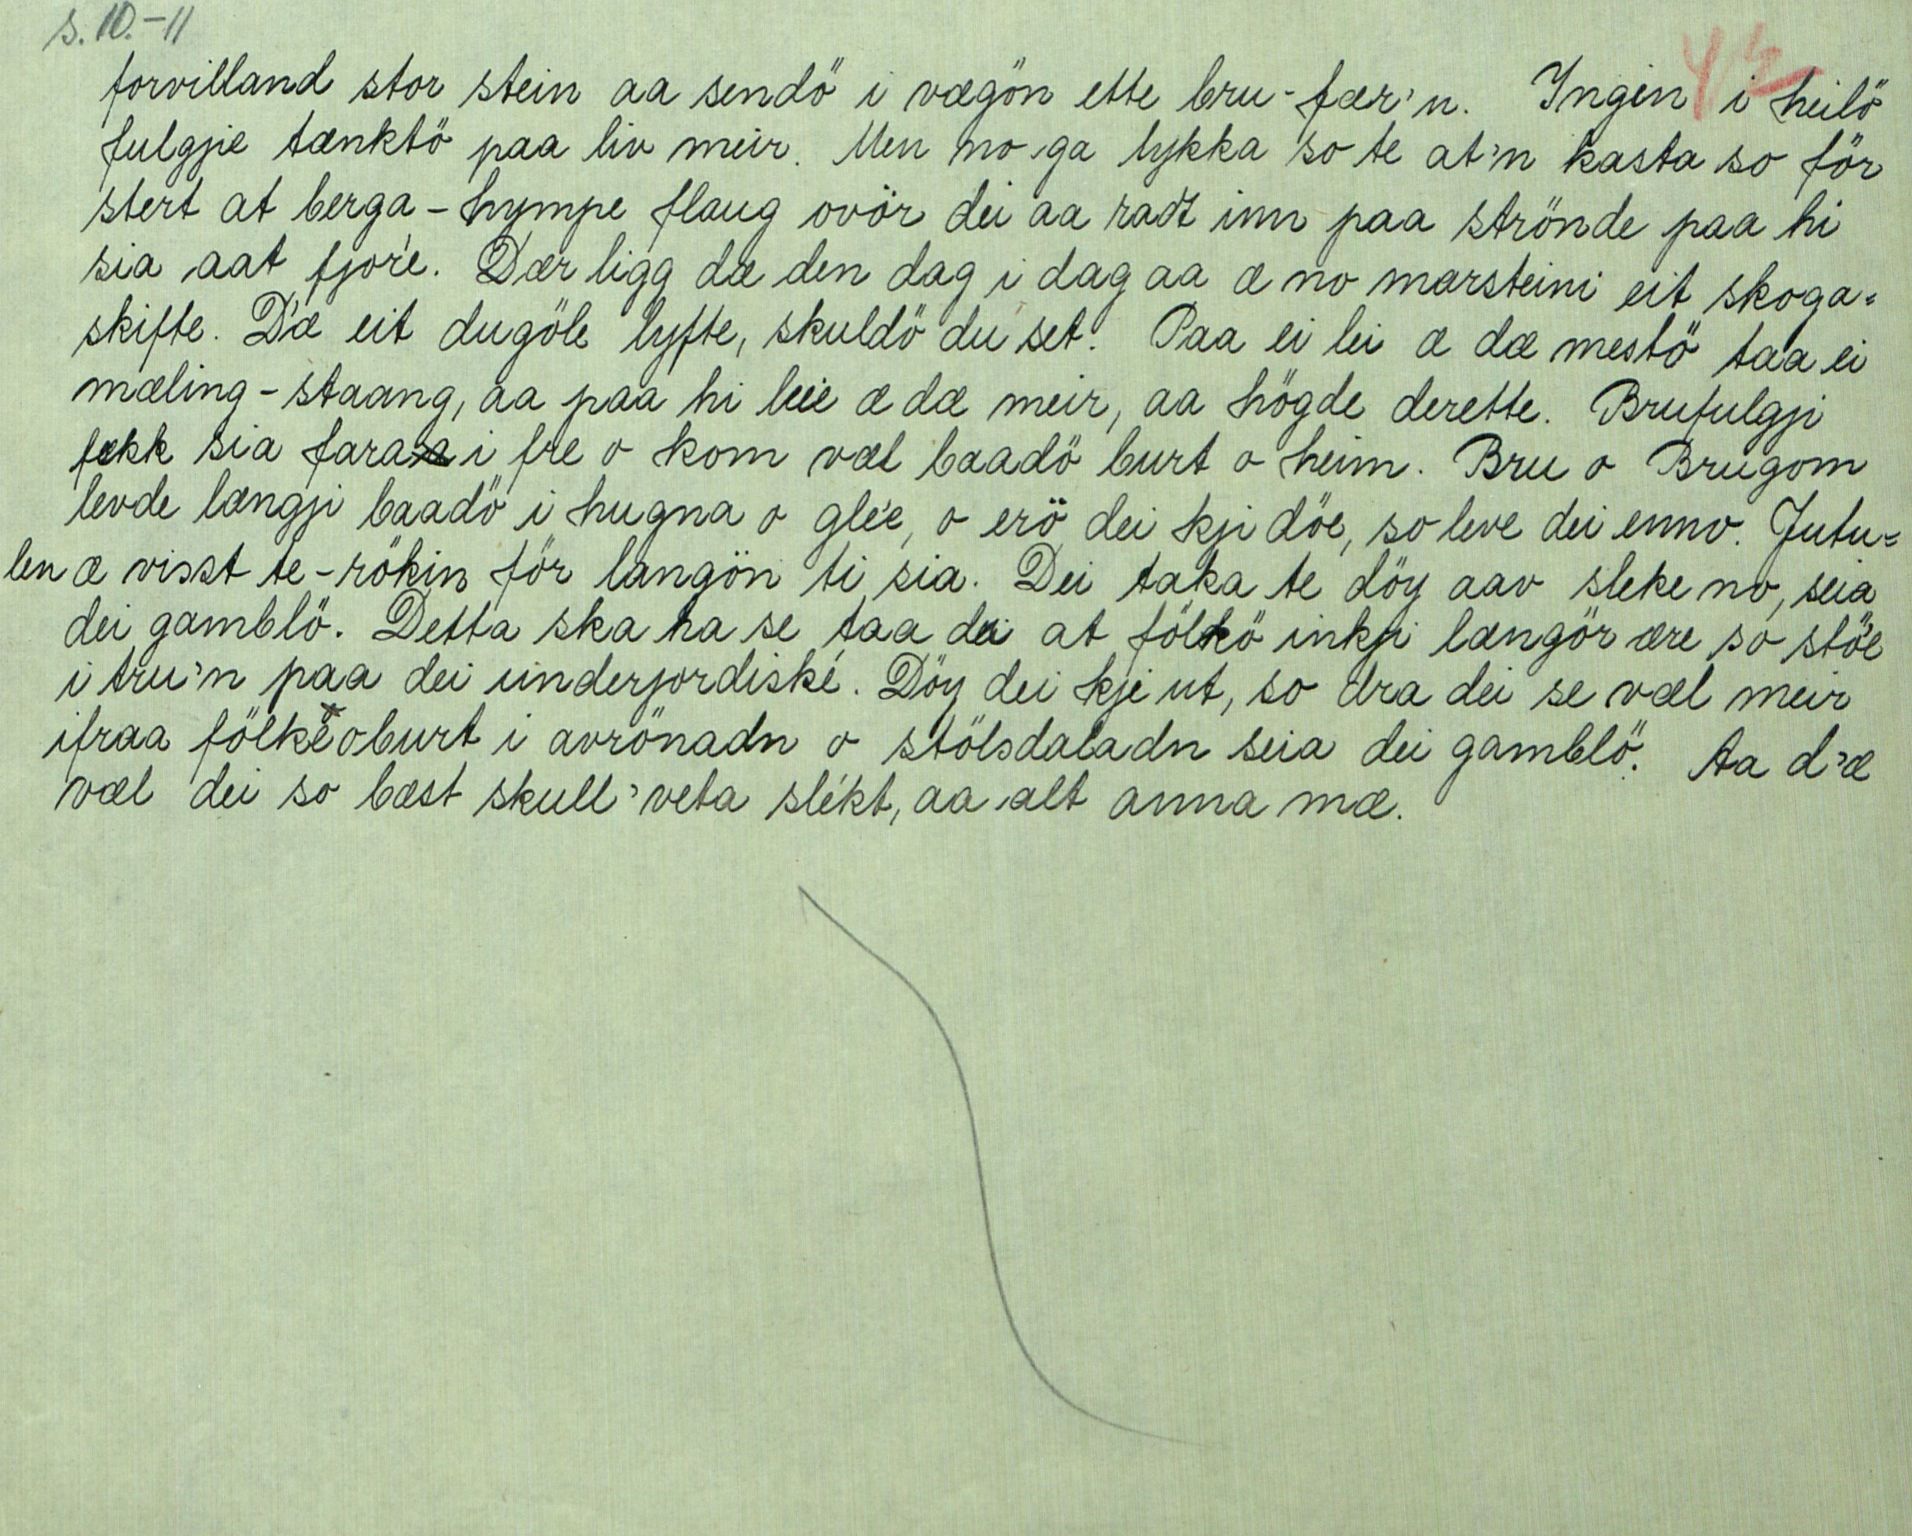 s. 10.-11
forvilland stor stein aa sendö i vægön ette bru-fær'n. Ingen i heilö
fulgjie tænktö paa liv meir. Men no ga lykka so te at'n kasta so för
stert at berga-hympe flaug ovör dei aa radt inn paa strönde paa hi
sia aat fjor'e. Dær ligg dæ den dag i dag aa æ no marsteini eit skoga-
skifte. D'æ eit dugöle lyfte, skuldö du set! Paa ei lei æ dæ mestö taa ei
mæling-staang, aa paa hi leie æ dæ meir, aa högde derette. Brufulgji
fekk sia fara i fre o kom væl baadö burt o heim. Bru o Brugom
levde længji baadö i hugna o glé'e, o erö dei kji döe, so leve dei enno. Jutu-
len æ visst te-rökin för langön ti sia. Dei taka te döy aav sleke no, seia
dei gamblö. Detta ska ha se taa dei at fölkö inkji længör ære so stö'e
i tru'n paa dei underjordiske. Döy dei kje ut, so dra dei se væl meir
ifraa fölkë o burt i avrönadn o stölsdaladn seia dei gamblö. Aa d'æ
væl dei so bæst skull' veta slékt, aa alt anna mæ.